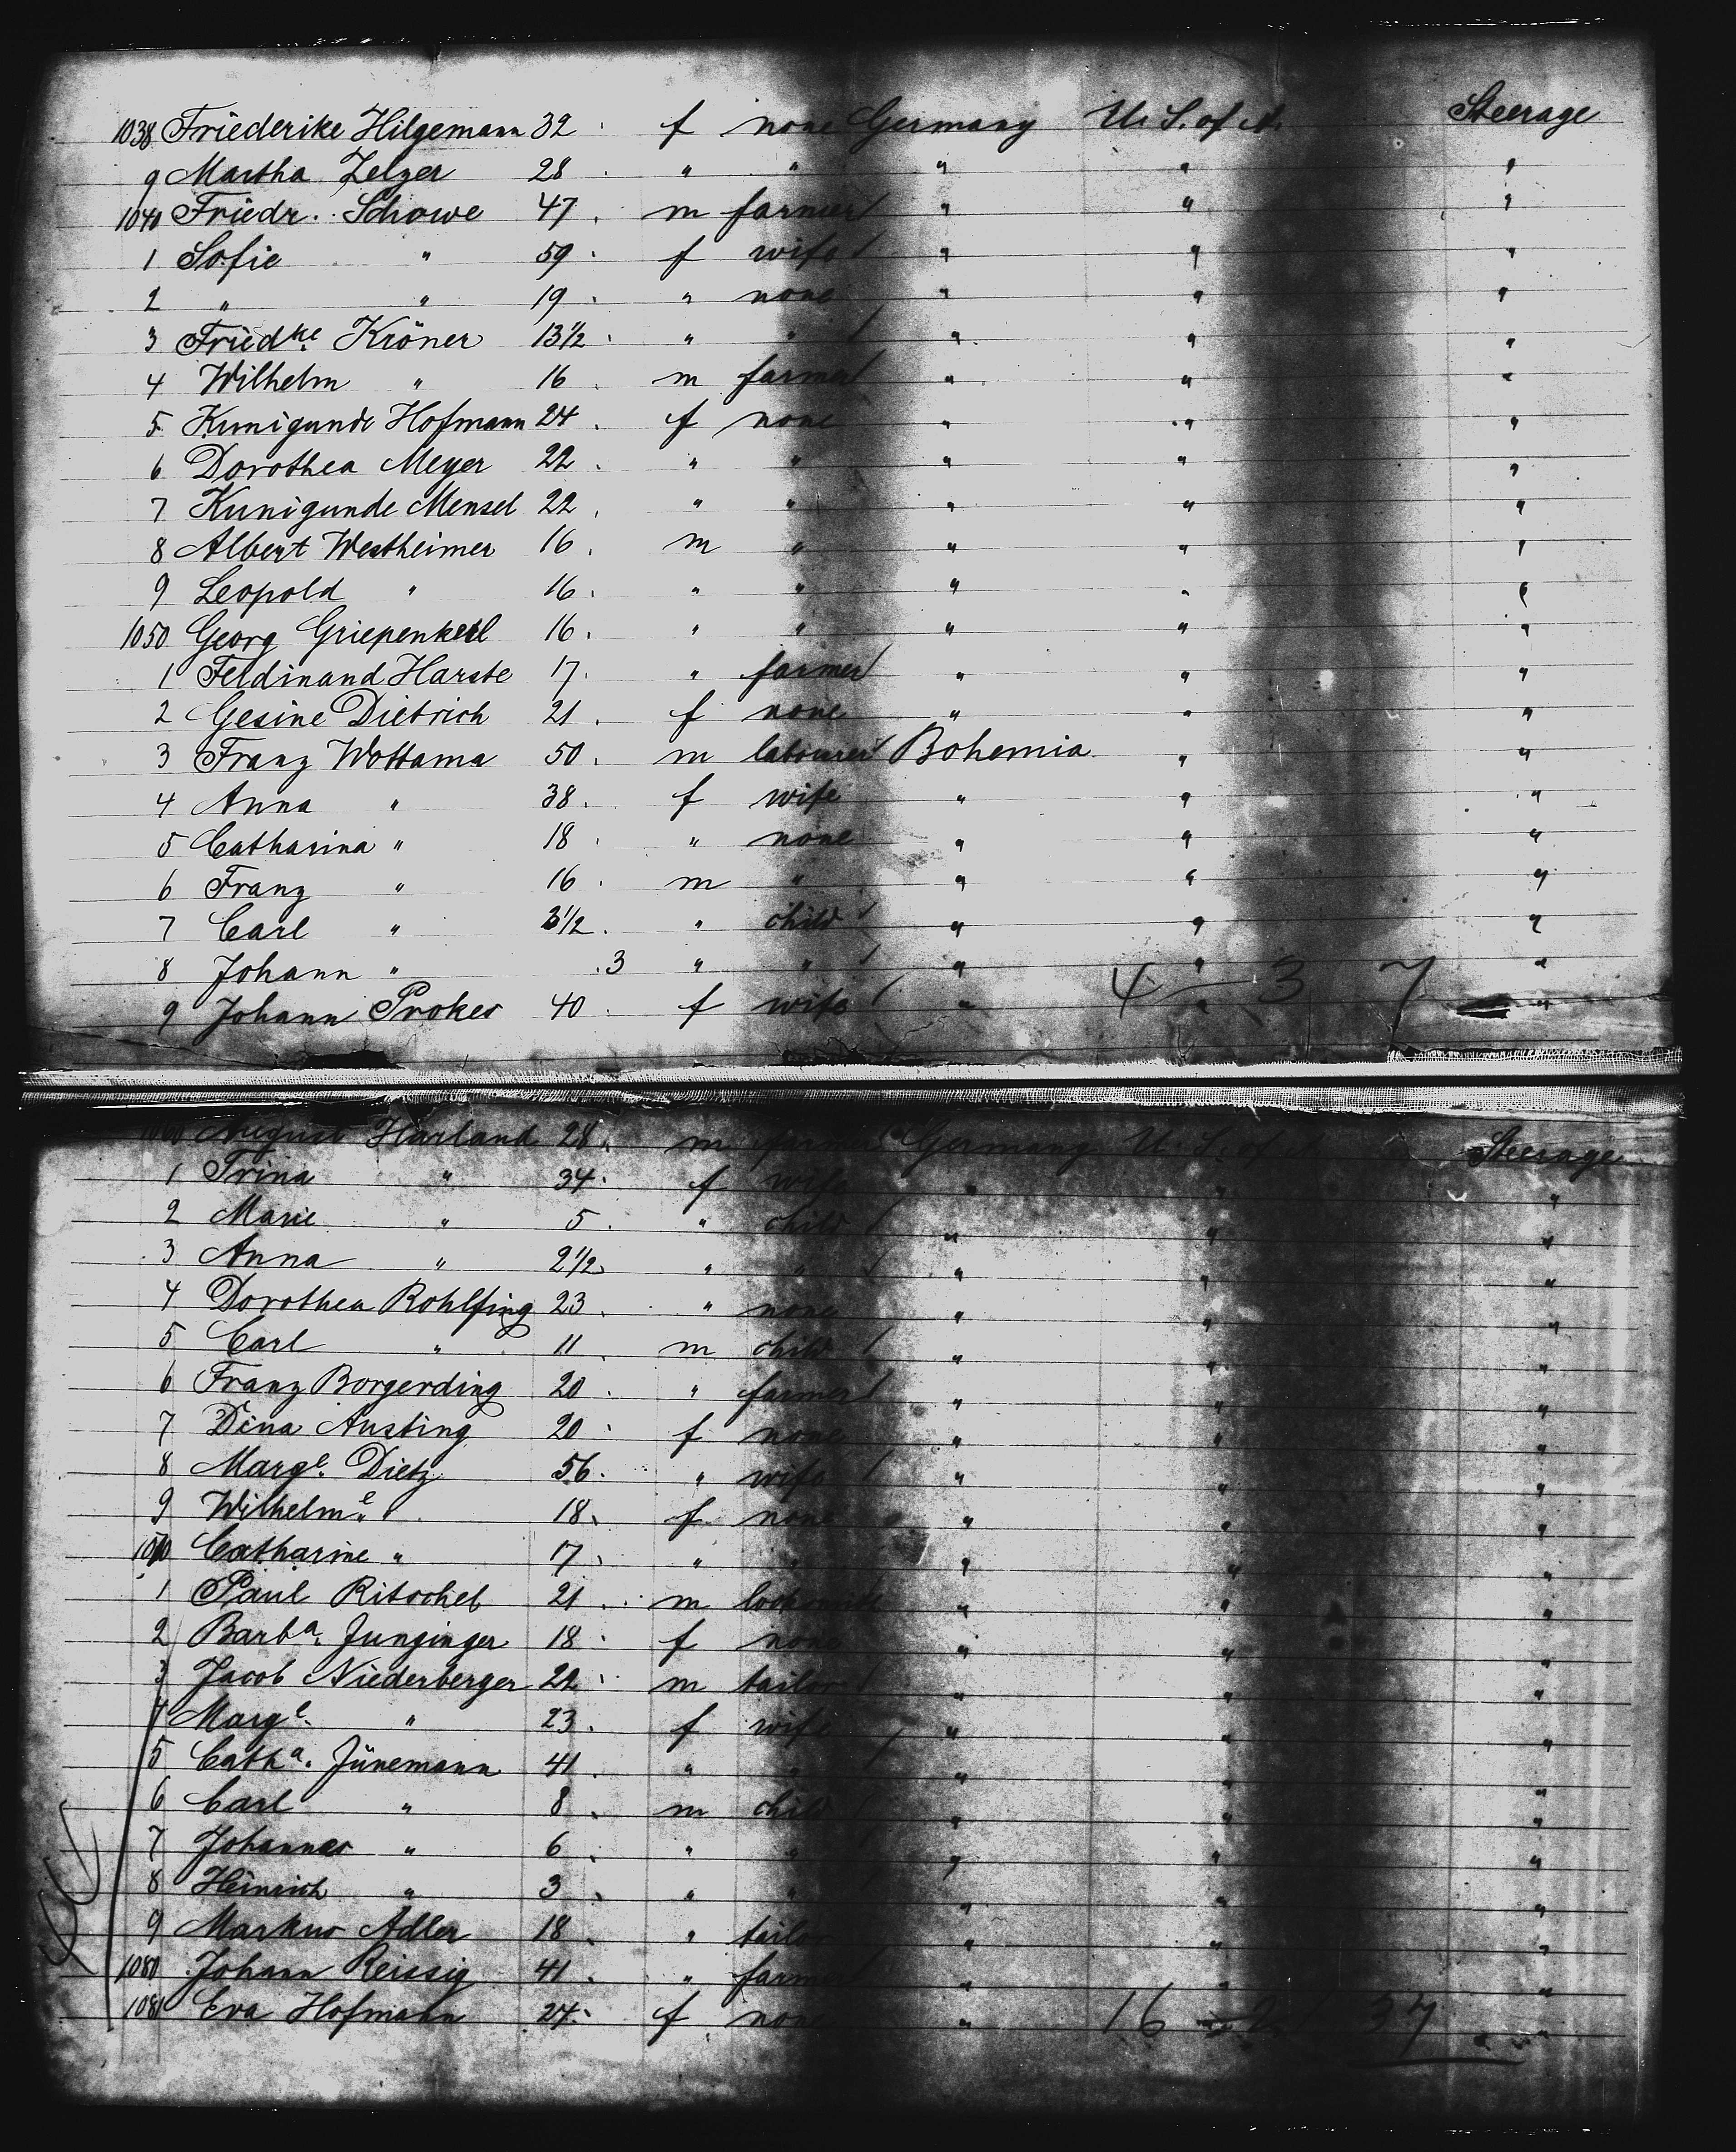 1038 Friederike Hilgemann 32 f none Germany U. S. of A. Steerage
9 Martha Zelger 28 " " " " "
1040 Friedr. Schowe 47 m farmer " " "
1 Sofie " 59 f wife " " "
2 " " 19 " none " " "
3 Friedke Kröner 13 1/2 " " " " "
4 Wilhelm " 16 m farmer " " "
5 Kunigunde Hofmann 24 f none " " "
6 Dorothea Meyer 22 " " " " "
7 Kunigunde Mensel 22 " " " " "
8 Albert Westheimer 16 m " " " "
9 Leopold " 16 " " " " "
1050 Georg Griepenkerl 16 " " " " "
1 Ferdinand Harste 17 " farmer " " "
2 Gesine Dietrich 21 f none " " "
3 Franz Wottama 50 m labourer Bohemia " "
4 Anna " 38 f wife " " "
5 Catharina " 18 " none " " "
6 Franz " 16 m " " " "
7 Carl " 3 1/2 " child " " "
8 Johann " 3 " " " " "
9 Johann Prokes 40 f wife " " "
4 3 7
1060 August Harland 28 m Germany U. S. of A Steerage
1 Trina " 34 f wife " " "
2 Marie " 5 " child " " "
3 Anna " 2 1/2 " " " " "
4 Dorothea Rohlfing 23 " none " " "
5 Carl " 11 m child " " "
6 Franz Borgerding 20 " farmer " " "
7 Dina Austing 20 f none " " "
8 Marge. Dietz 56 " wife " " "
9 Wilhelme " 18 f none " " "
1070 Catharine " 17 " " " " "
1 Paul Ritschel 21 m " " "
2 Barba. Junginger 18 f none " " "
3 Jacob Niederberger 22 m tailor " " "
4 Marge. " 23 f wife " " "
5 Catha. Jünemann 41 " " " " "
6 Carl " 8 m child " " "
7 Johannes " 6 " " " " "
8 Heinrich " 3 " " " " "
9 Markus Adler 18 " tailor " " "
1080 Johann Reissig 41 " farmer " " "
1081 Eva Hofmann 24 f none " " "
16 37